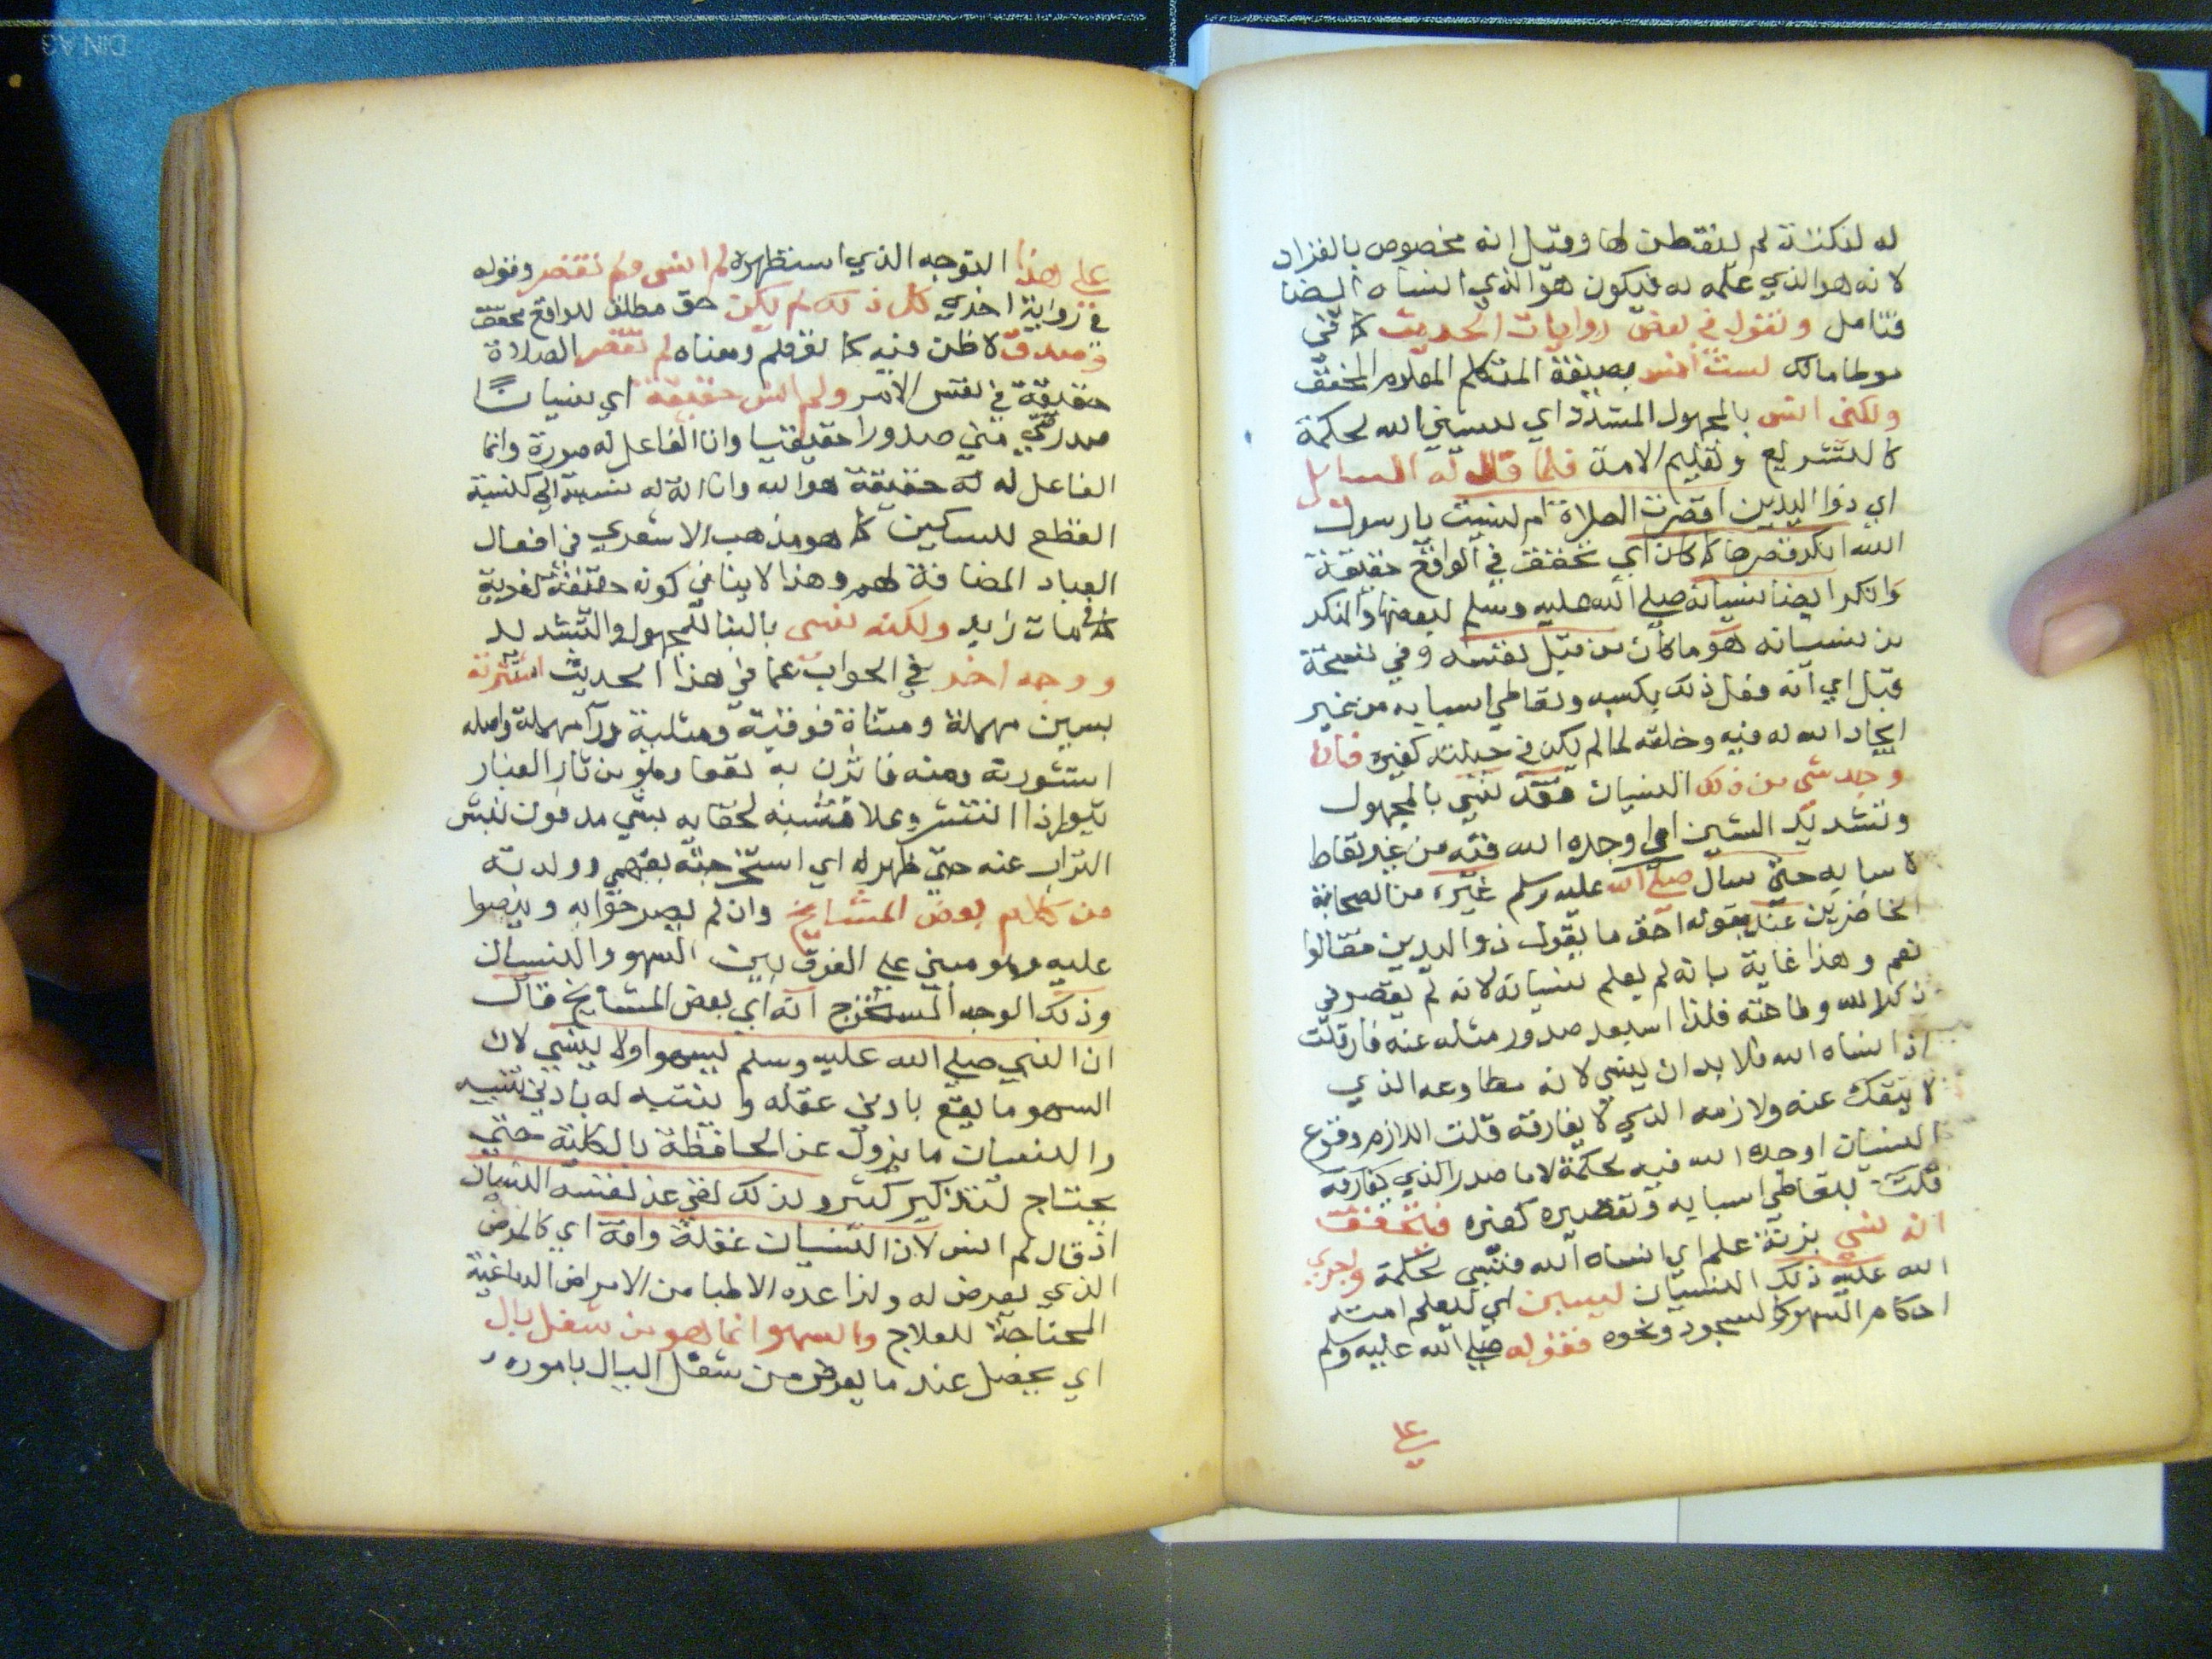 له لنكتة لم يتفطن لها وقيل انه مخصوص بالقران
لانه هو الذي علمه له فيكون هو الذي انساه ايضا
فتامل ونقول في بعض روايات الحديث كما في
موطا مالك لست انسى بصيغة المتكلم المعلوم المخفف
ولكني انسى بالمجهول المشدد اي ينسيني الله لحكمة
كالتشريع وتعليم الامة فلما قال له السايل
اي ذوا اليدين اقصرت الصلاة ام نسيت يا رسول
الله انكر قصرها كما كان اي تحقق في الواقع حقيقة
وانكر ايضا نسيانه صلى الله عليه وسلم لبعضها والمنكر
من نسيانه هو ما كان من قبل نفسه وفي نسخة
قبل اي انه فعل ذلك بكسبه وتعاطي اسبابه من غير
ايجاد الله له فيه وخلقه لما لم يكن في جبلته كغيره فان
وجد شي من ذلك النسيان فقد نسي بالمجهول
وتشديد السين اي اوجده الله فيه من غير تعاط
لاسبابه حتى سال صلى الله عليه وسلم غيره من الصحابة
الحاضرين عنده بقوله احق ما يقول ذو اليدين فقالوا
نعم وهذا غاية بانه لم يعلم نسيانه لانه لم يقصر في
ذكر الله وطاعته فلذا استبعد صدور مثله عنه فان قلت
اذا انساه الله فلا بد ان ينسي لانه مطاوعه الذي
لا ينفك عنه ولازمه الذي لا يفارقه قلت اللازم وقوع
النسيان اوجده الله فيه لحكمة لا ما صدر الذي يفارقه
قلت بتعاطي اسبابه وتقصيره كغيره فتحقق
انه نسي بزنة علم اي انساه الله فنسي لحكمة واجري
الله عليه ذلك النسيان ليسن اي ليعلم امته
احكام السهو كالسجود ونحوه فقوله صلى الله عليه وسلم
على
على هذا التوجه الذي استظهره لم انس ولم تقصر وقوله
في رواية اخري كل ذلك لم يكن حق مطلق للواقع محقق
وصدق لا ظن فيه كما تقدم ومعناه لم تقصر الصلاة
حقيقة في نفس الامر ولم انس حقيقة اي نسيانا
صدر مني صدورا حقيقيا وانا الفاعل له صورة وانما
الفاعل له له حقيقة هو الله وانا الة له نسبته الي كنسبة
القطع للسكين كما هو مذهب الاشعري في افعال
العباد المضافة لهم وهذا لا ينافي كونه حقيقة لغوية
كما في مات زيد ولكنه نسي بالبنا للمجهول والتشديد
ووجه اخر في الجواب عما في هذا الحديث استثرته
بسين مهملة ومثناة فوقية ومثلثة ورا مهملة واصله
استثورته ومنه فاثرن به نقعا وهو من ثار الغبار
يثور اذا انتشر وعلا فشبه لخفايه بشي مدفون نبش
التراب عنه حتى ظهر له اي استخرجته بفهمي وولدته
من كلام بعض المشايخ وان لم يصرحوا به وينصوا
عليه وهو مبني على الفرق بين السهو والنسيان
وذلك الوجه المستخرج انه اي بعض المشايخ قال
ان النبي صلى الله عليه وسلم يسهوا ولا ينسي لان
السهو ما يقع بادني غفلة ويتنبه له بادني تنبيه
والنسيان ما يزول عن الحافظة بالكلية حتى
يحتاج لتذكير كثير ولذلك نفي عن نفسه النسيان
اذ قال لم انس لان النسيان غفلة وافة اي كالمرض
الذي يعرض له ولذا عده الاطبا من الامراض الدماغية
المحتاجة للعلاج والسهو انما هو من شغل بال
اي يحصل عند ما يعرض من شغل البال بامور